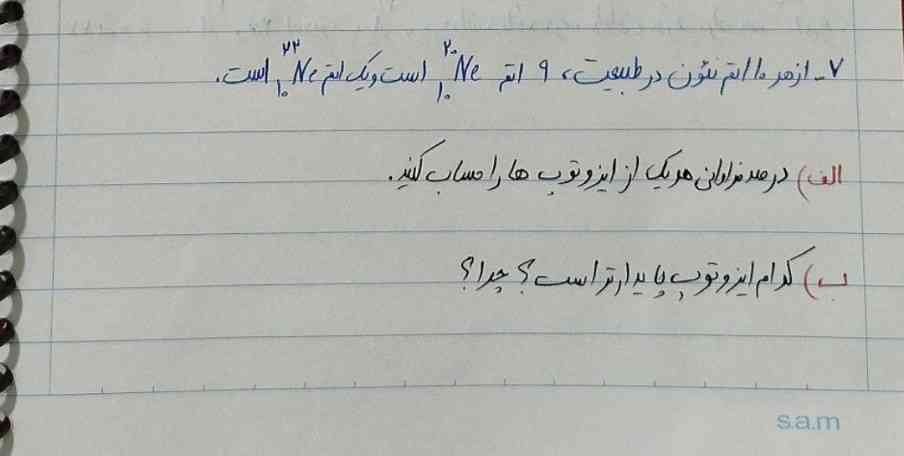 ۷- از هر ۱۰ اتم نئون در طبیعت، ۹ اتم ²⁰₁₀Ne است و یک اتم ²²₁₀Ne است.
الف) درصد فراوانی هر یک از ایزوتوپ ها را حساب کنید.
ب) کدام ایزوتوپ پایدارتر است؟ چرا؟
s.a.m